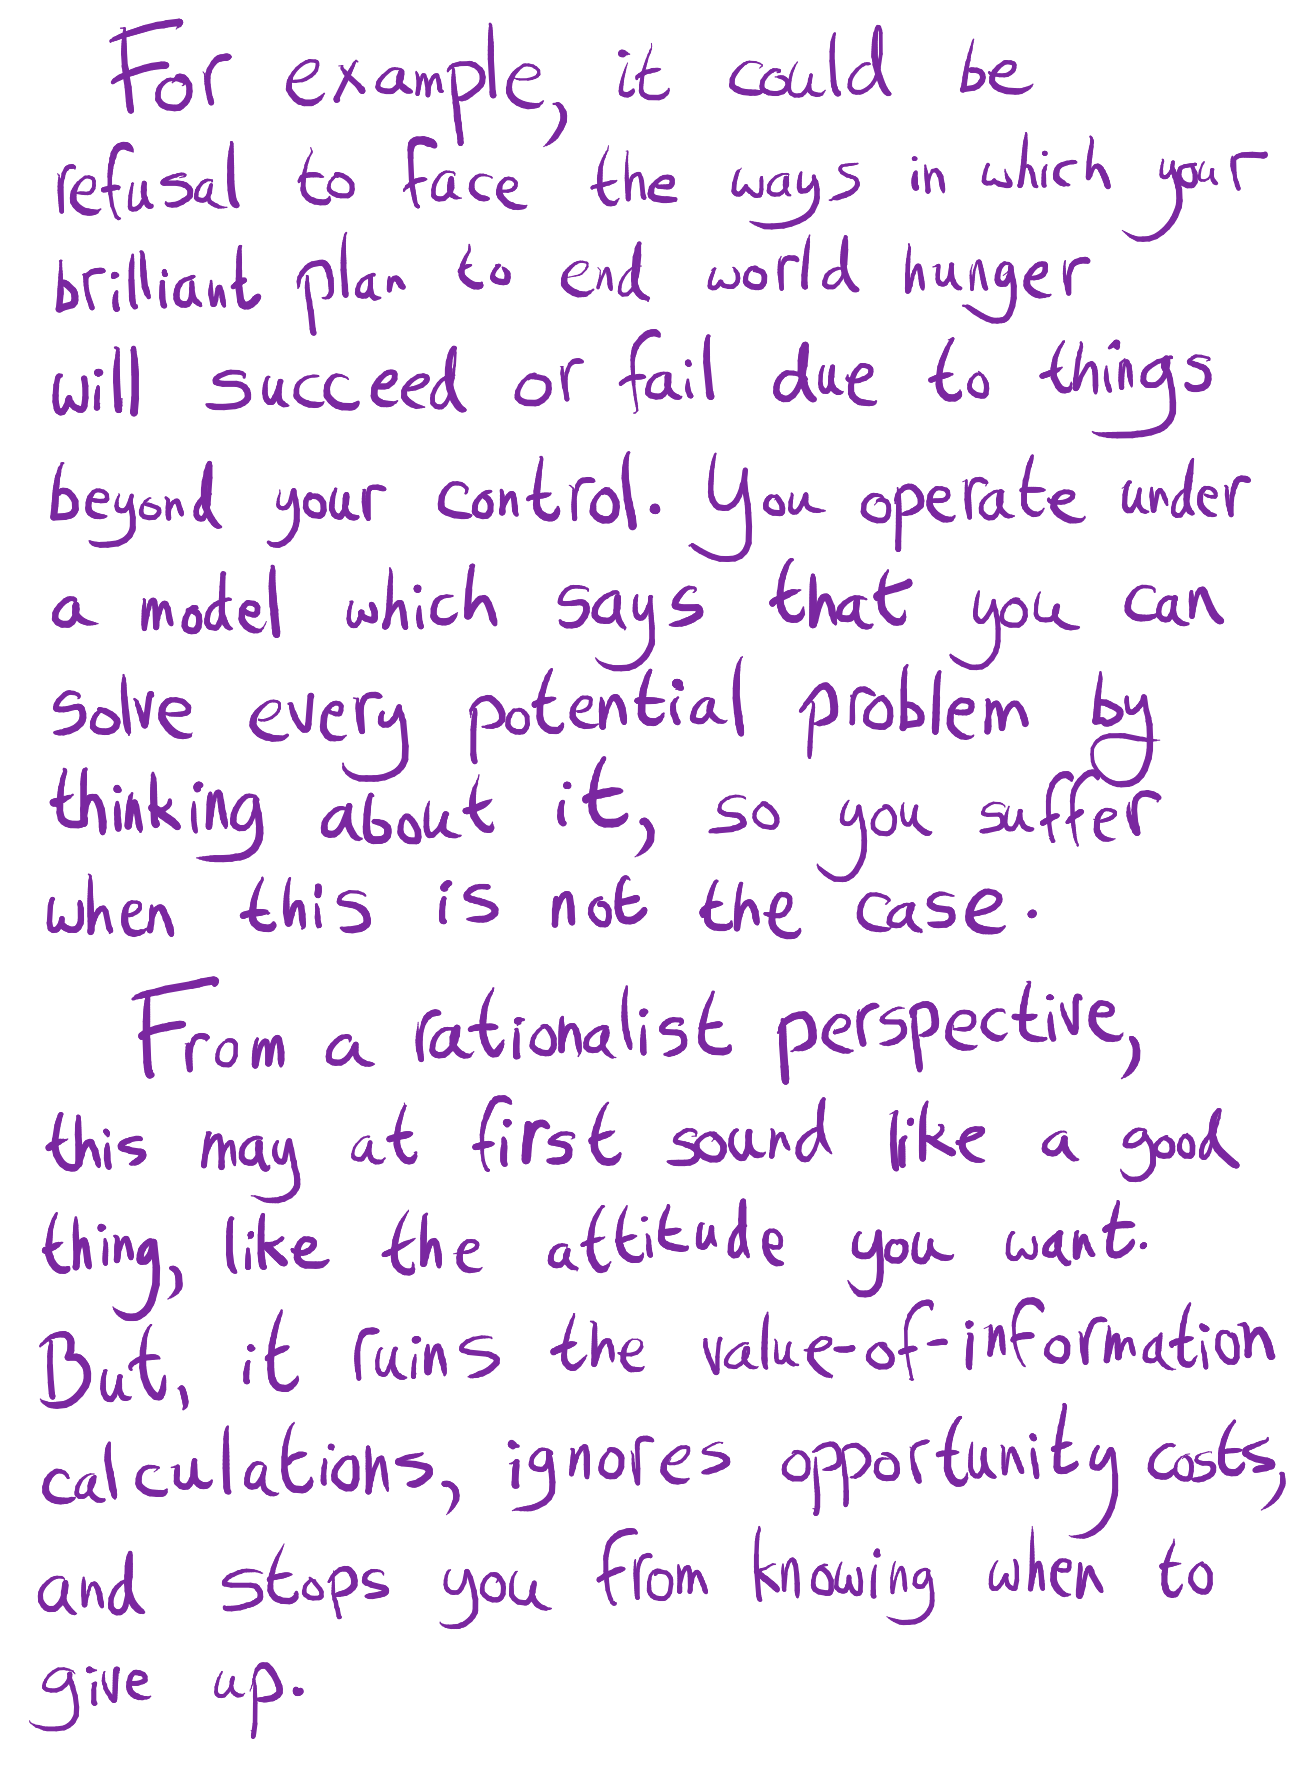 For example, it could be
refusal to face the ways in which your
brilliant plan to end world hunger
will succeed or fail due to things
beyond your control. You operate under
a model which says that you can
solve every potential problem by
thinking about it, so you suffer
when this is not the case.
From a rationalist perspective,
this may at first sound like a good
thing, like the attitude you want.
But, it ruins the value-of-information
calculations, ignores opportunity costs,
and stops you from knowing when to
give up.